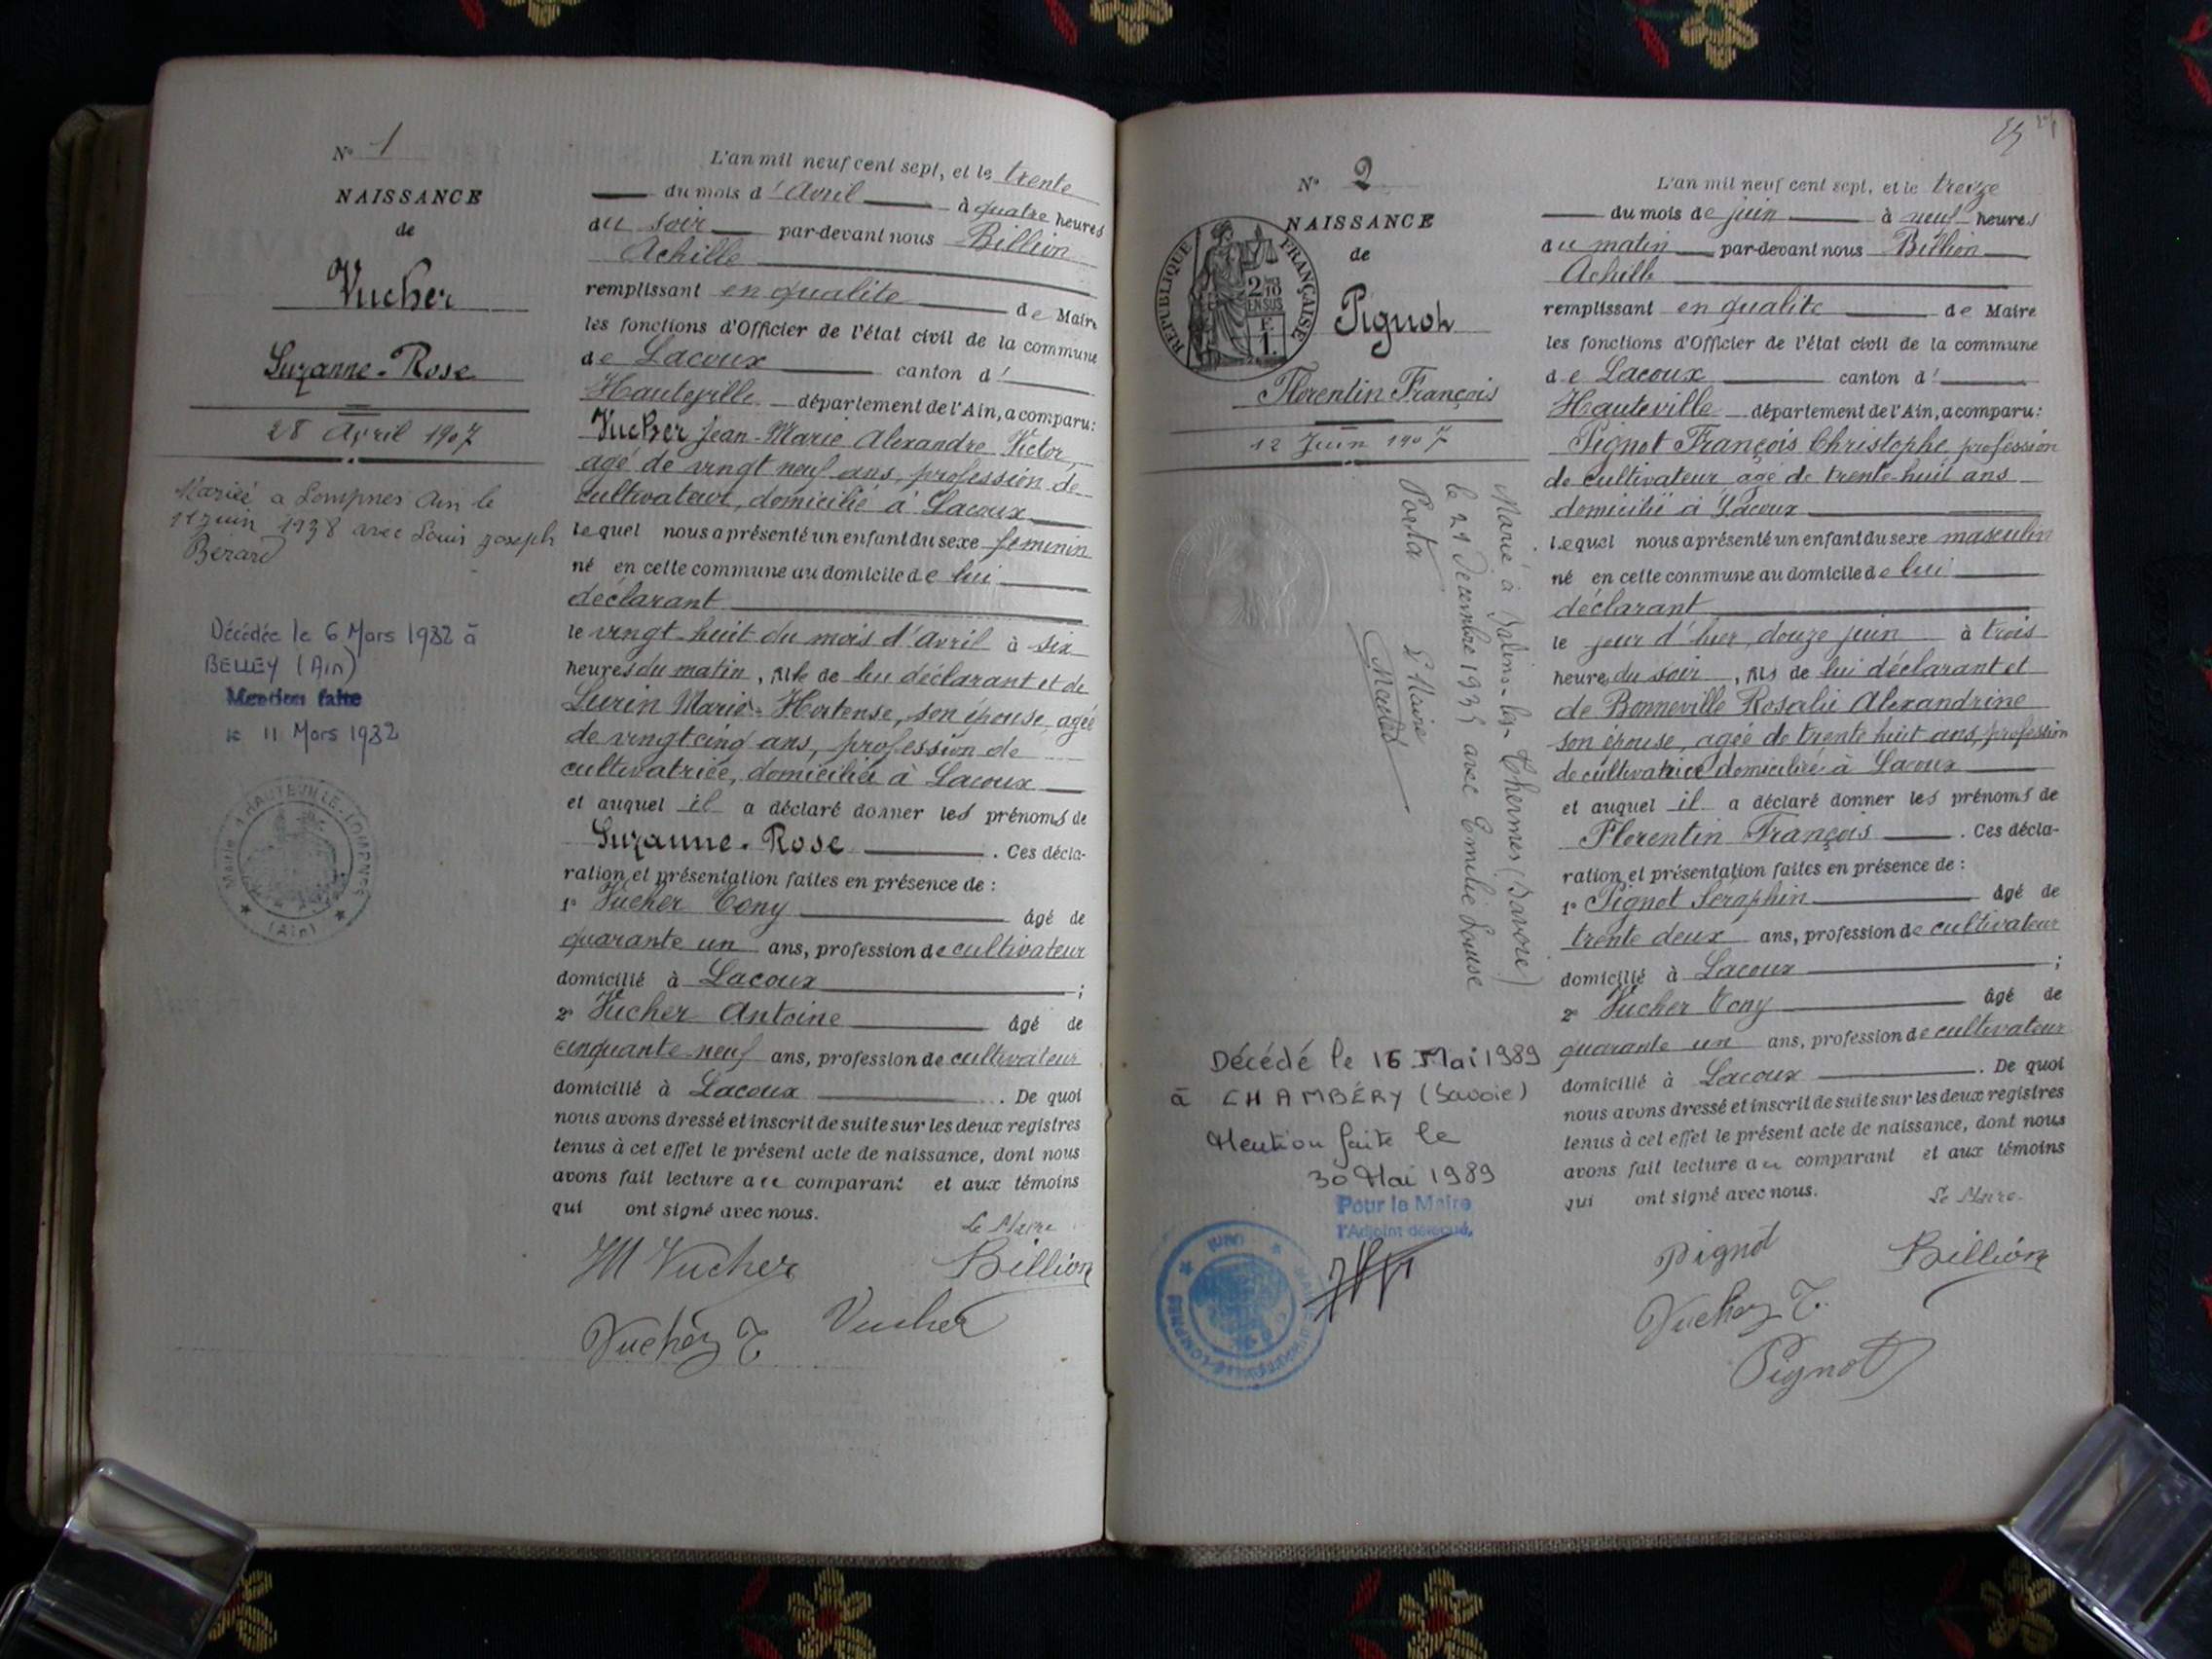 N° 1
NAISSANCE
de
Vucher
Suzanne-Rose
28 Avril 1907
Mariée a Lompnes Ain le
11 juin 1938 avec Louis Joseph
Bérard
Décédée le 6 Mars 1982 à
BELLEY (Ain)
Mention faite
le 11 Mars 1982
Mairie d'HAUTEVILLE-LOMPNES
(Ain)
L'an mil neuf cent sept, et le trente
du mois d'Avril à quatre heures
du soir par-devant nous Billion
Achille
remplissant en qualité de Maire
les fonctions d'Officier de l'état civil de la commune
de Lacoux canton d'
Hauteville département de l'Ain, a comparu:
Vucher Jean-Marie Alexandre Victor,
agé de vingt neuf ans, profession de
cultivateur, domicilié à Lacoux
lequel nous a présenté un enfant du sexe féminin
né en cette commune au domicile de lui
déclarant
le vingt-huit du mois d'Avril à six
heures du matin, fille de lui déclarant et de
Lurin Marie-Hortense, son épouse, agée
de vingt cinq ans, profession de
cultivatrice, domiciliée à Lacoux
et auquel il a déclaré donner les prénoms de
Suzanne-Rose. Ces décla-
ration et présentation faites en présence de :
1° Vucher Tony âgé de
quarante un ans, profession de cultivateur
domicilié à Lacoux ;
2° Vucher Antoine âgé de
cinquante-neuf ans, profession de cultivateur
domicilié à Lacoux. De quoi
nous avons dressé et inscrit de suite sur les deux registres
tenus à cet effet le présent acte de naissance, dont nous
avons fait lecture au comparant et aux témoins
qui ont signé avec nous.
Le Maire
JM Vucher Billion
Vucher T Vucher
N° 2
NAISSANCE
de
REPUBLIQUE FRANÇAISE
2/10 EN SUS
F. 1.
Pignot
Florentin François
12 Juin 1907
Marié à Salins-les-Thermes (Savoie)
le 21 Décembre 1935 avec Emilie Louise
Porta
L Maire
Décédé le 16 Mai 1989
à CHAMBÉRY (Savoie)
Mention faite le
30 Mai 1989
Pour le Maire
l'Adjoint délégué,
L'an mil neuf cent sept, et le treize
du mois de juin à neuf heures
du matin par-devant nous Billion
Achille
remplissant en qualité de Maire
les fonctions d'Officier de l'état civil de la commune
de Lacoux canton d'
Hauteville département de l'Ain, a comparu:
Pignot François Christophe, profession
de cultivateur agé de trente-huit ans
domicilié à Lacoux
lequel nous a présenté un enfant du sexe masculin
né en cette commune au domicile de lui
déclarant
le jour d'hier, douze juin à trois
heures du soir, fils de lui déclarant et
de Bonneville Rosalie Alexandrine
son épouse, agée de trente huit ans, profession
de cultivatrice domiciliée à Lacoux
et auquel il a déclaré donner les prénoms de
Florentin François. Ces décla-
ration et présentation faites en présence de :
1° Pignot Séraphin âgé de
trente deux ans, profession de cultivateur
domicilié à Lacoux ;
2° Vucher Tony âgé de
quarante un ans, profession de cultivateur
domicilié à Lacoux. De quoi
nous avons dressé et inscrit de suite sur les deux registres
tenus à cet effet le présent acte de naissance, dont nous
avons fait lecture au comparant et aux témoins
qui ont signé avec nous.
Le Maire
Pignot Billion
Vucher T.
Pignot